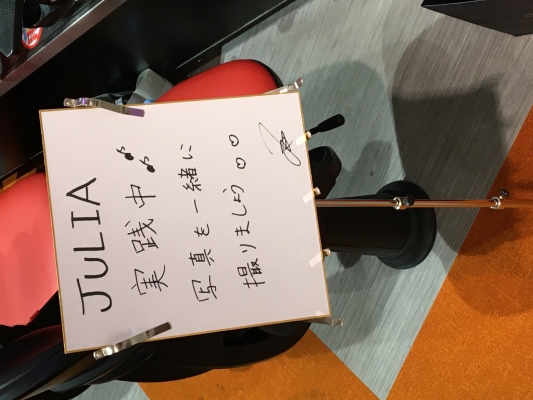 JULIA
実践中♪♪
写真を一緒に
撮りましょう♡♡